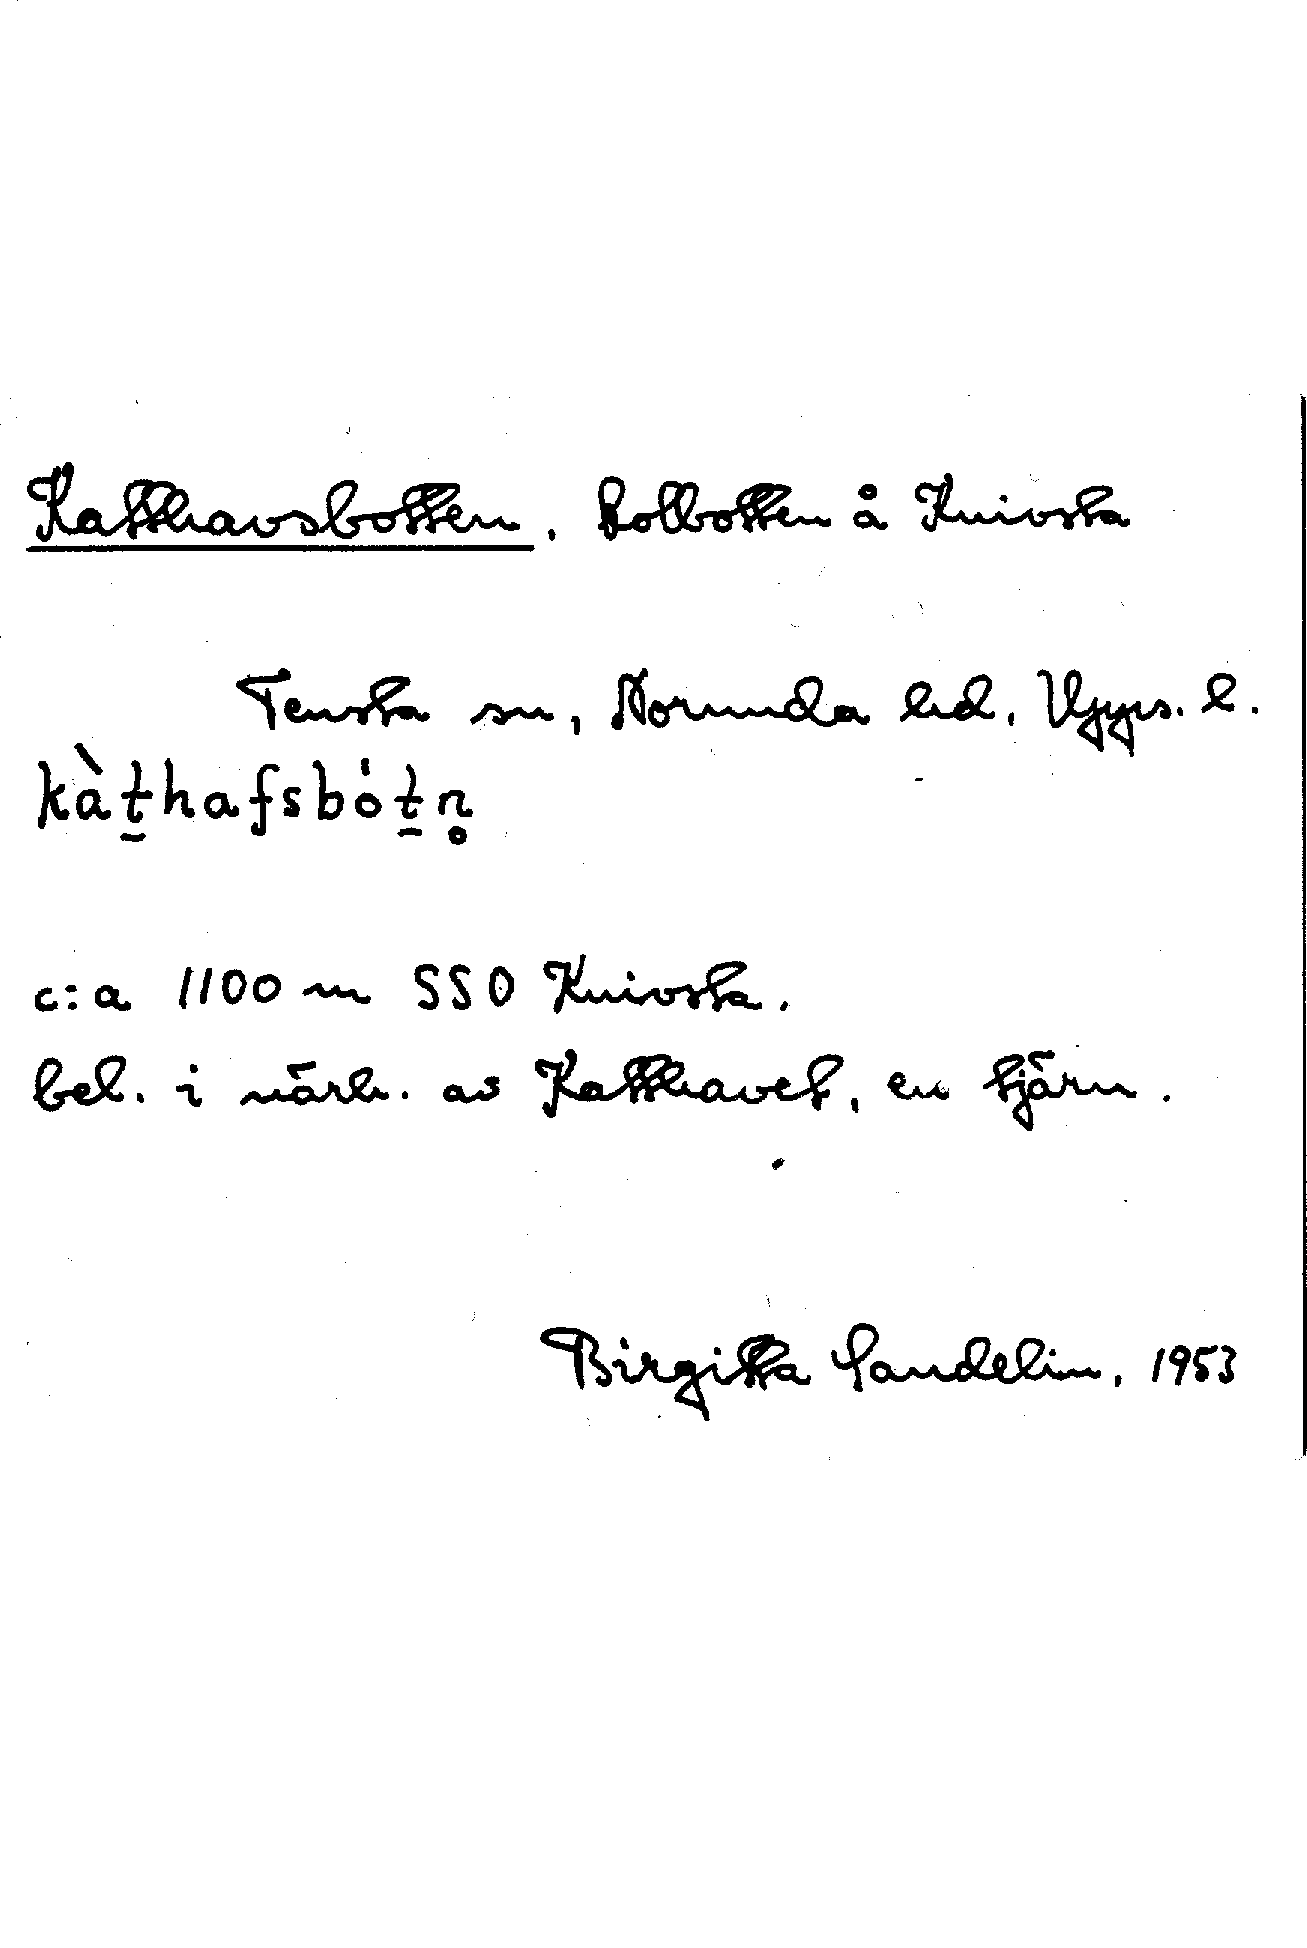 Katthavsbotten, Kolbotten å Knivsta
Tensta sn, Norunda hd, Upps. l.
kàt̠hafsbót̠n̥
c:a 1100 m SSO Knivsta.
bel. i närh. av Katthavet, en tjärn.
Birgitta Sandelin, 1953